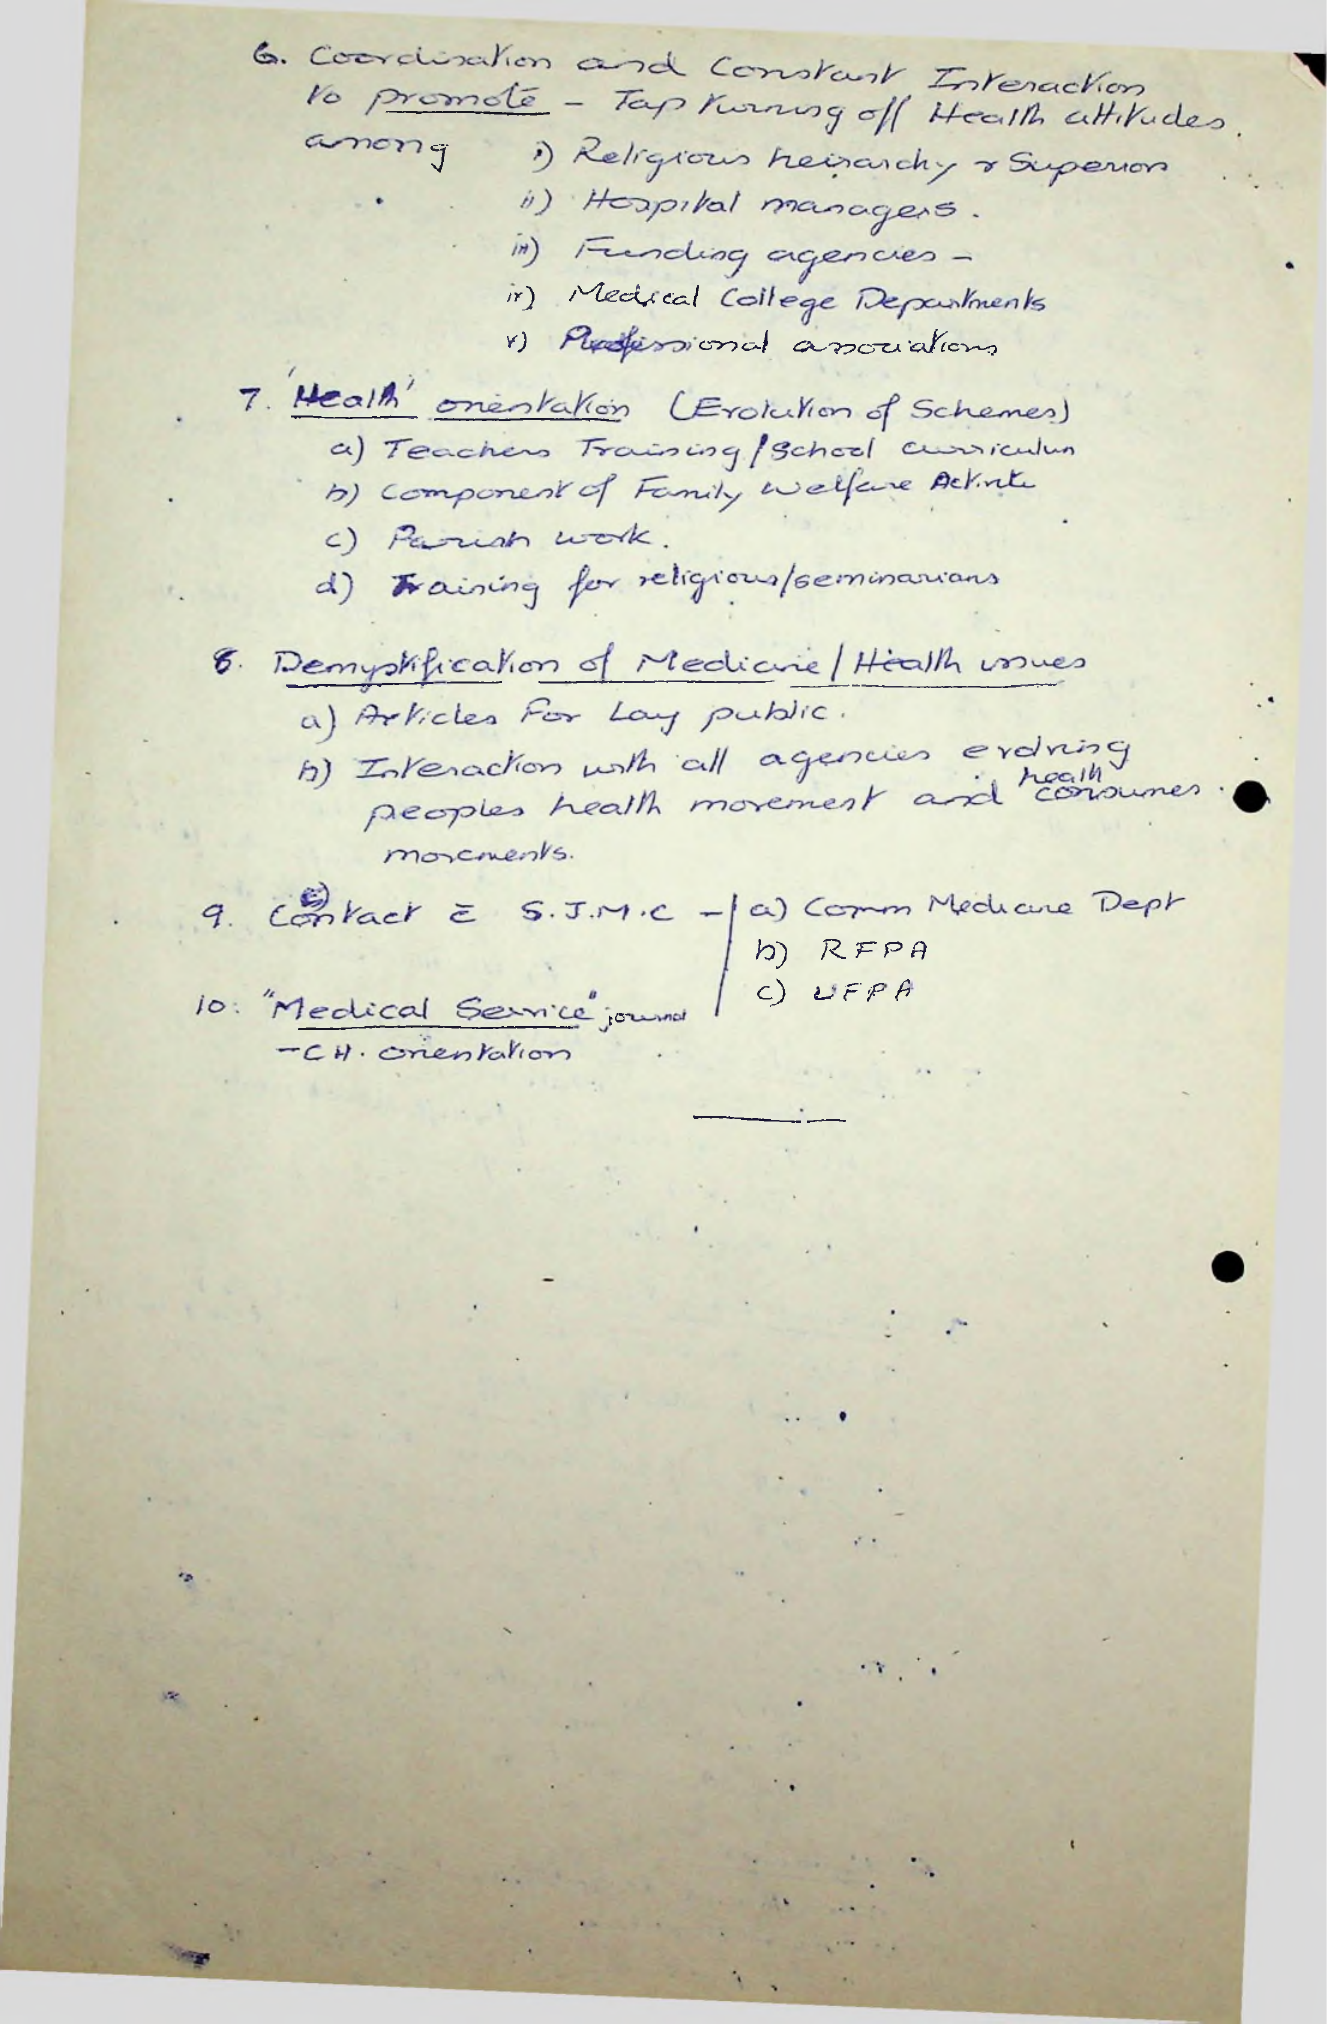 6. Coordination and Constant Interaction
to promote - Tap turning off Health attitudes.
among i) Religious heirarchy & Superiors
ii) Hospital managers.
iii) Funding agencies -
iv) Medical College Departments
v) Professional associations
7. 'Health' orientation (Evolution of Schemes)
a) Teachers Training/School curriculum
b) Component of Family Welfare
c) Parish work.
d) Training for religious/seminarians
8. Demystification of Medicine/Health issues
a) Articles for Lay public.
b) Interaction with all agencies evolving
peoples health movement and health consumers
movements.
9. Contact c̄ S.J.M.C - a) Comm Medicine Dept
b) RFPA
c) UFPA
10. "Medical Service" journal
- C H. orientation